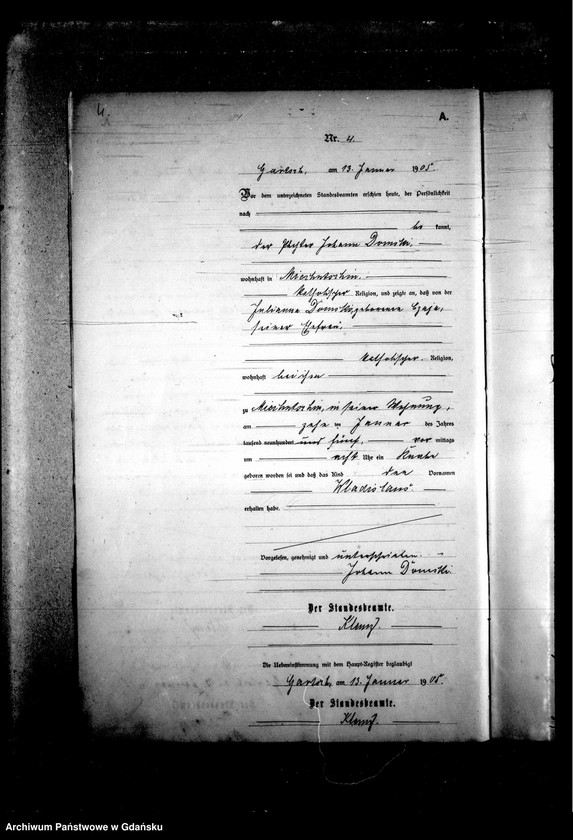 4.
A.
Nr. 4.
am 13. Januar 1905.
Vor dem unterzeichneten Standesbeamten erschien heute, der Persönlichkeit
nach
be kannt,
der Johann Domski,
wohnhaft in
katholischer Religion, und zeigte an, daß von der
Julianna Domski, geborenen
seiner Ehefrau,
katholischer Religion,
wohnhaft bei ihm
zu in seiner Wohnung,
am zehn ten Januar des Jahres
tausend neunhundert und fünf, vor mittags
um acht Uhr ein Knabe
geboren worden sei und daß das Kind den Vornamen
Wladislaus
erhalten habe.
Vorgelesen, genehmigt und unterschrieben.
Johann Domski.
Der Standesbeamte.
Die Uebereinstimmung mit dem Haupt-Register beglaubigt
am 13. Januar 1905.
Der Standesbeamte.
Archiwum Państwowe w Gdańsku